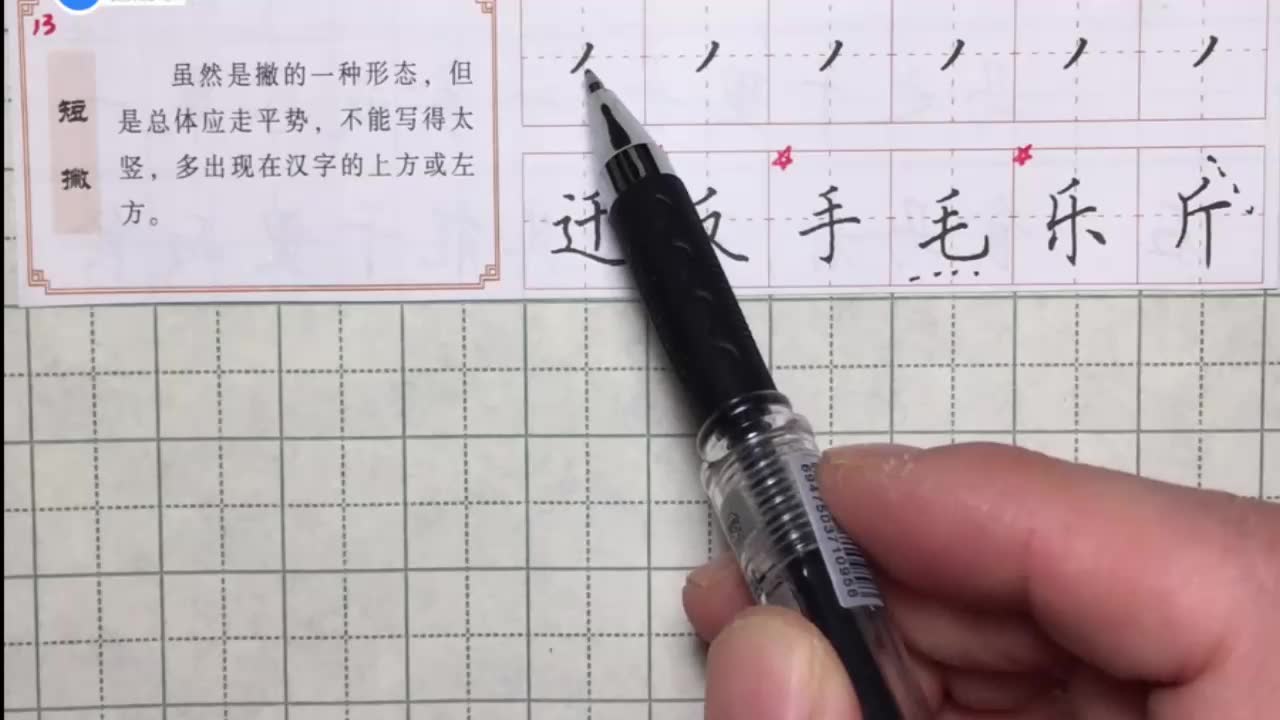 13
短撇
虽然是撇的一种形态，但
是总体应走平势，不能写得太
竖，多出现在汉字的上方或左
方。
丿 丿 丿 丿 丿 丿
迁 反 手 毛 乐 斤
6947503710956